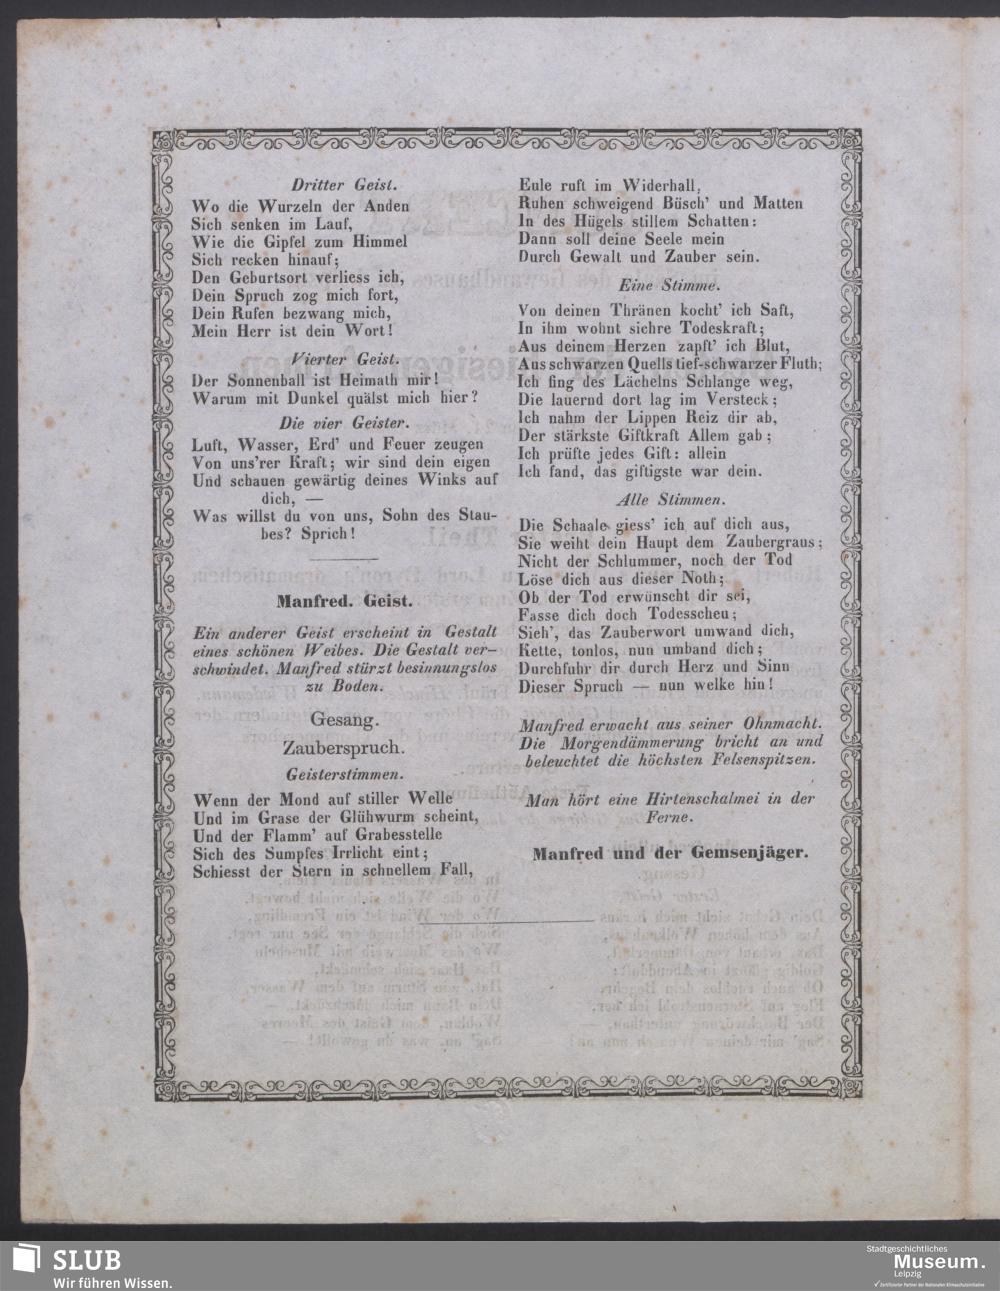 Dritter Geist.
Wo die Wurzeln der Anden
Sich senken im Lauf,
Wie die Gipfel zum Himmel
Sich recken hinauf;
Den Geburtsort verliess ich,
Dein Spruch zog mich fort,
Dein Rufen bezwang mich,
Mein Herr ist dein Wort!
Vierter Geist.
Der Sonnenball ist Heimath mir!
Warum mit Dunkel quälst mich hier?
Die vier Geister.
Luft, Wasser, Erd' und Feuer zeugen
Von uns'rer Kraft; wir sind dein eigen
Und schauen gewärtig deines Winks auf
dich, —
Was willst du von uns, Sohn des Stau-
bes? Sprich!
Manfred. Geist.
Ein anderer Geist erscheint in Gestalt
eines schönen Weibes. Die Gestalt ver-
schwindet. Manfred stürzt besinnungslos
zu Boden.
Gesang.
Zauberspruch.
Geisterstimmen.
Wenn der Mond auf stiller Welle
Und im Grase der Glühwurm scheint,
Und der Flamm' auf Grabesstelle
Sich des Sumpfes Irrlicht eint;
Schiesst der Stern in schnellem Fall,
Eule ruft im Widerhall,
Ruhen schweigend Büsch' und Matten
In des Hügels stillem Schatten:
Dann soll deine Seele mein
Durch Gewalt und Zauber sein.
Eine Stimme.
Von deinen Thränen kocht' ich Saft,
In ihm wohnt sichre Todeskraft;
Aus deinem Herzen zapft' ich Blut,
Aus schwarzen Quells tief-schwarzer Fluth;
Ich fing des Lächelns Schlange weg,
Die lauernd dort lag im Versteck;
Ich nahm der Lippen Reiz dir ab,
Der stärkste Giftkraft Allem gab;
Ich prüfte jedes Gift: allein
Ich fand, das giftigste war dein.
Alle Stimmen.
Die Schaale giess' ich auf dich aus,
Sie weiht dein Haupt dem Zaubergraus;
Nicht der Schlummer, noch der Tod
Löse dich aus dieser Noth;
Ob der Tod erwünscht dir sei,
Fasse dich doch Todesscheu;
Sieh', das Zauberwort umwand dich,
Kette, tonlos, nun umband dich;
Durchfuhr dir durch Herz und Sinn
Dieser Spruch — nun welke hin!
Manfred erwacht aus seiner Ohnmacht.
Die Morgendämmerung bricht an und
beleuchtet die höchsten Felsenspitzen.
Man hört eine Hirtenschalmei in der
Ferne.
Manfred und der Gemsenjäger.
SLUB
Wir führen Wissen.
Stadtgeschichtliches
Museum.
Leipzig
Zertifizierter Partner der Nationalen Klimaschutzinitiative